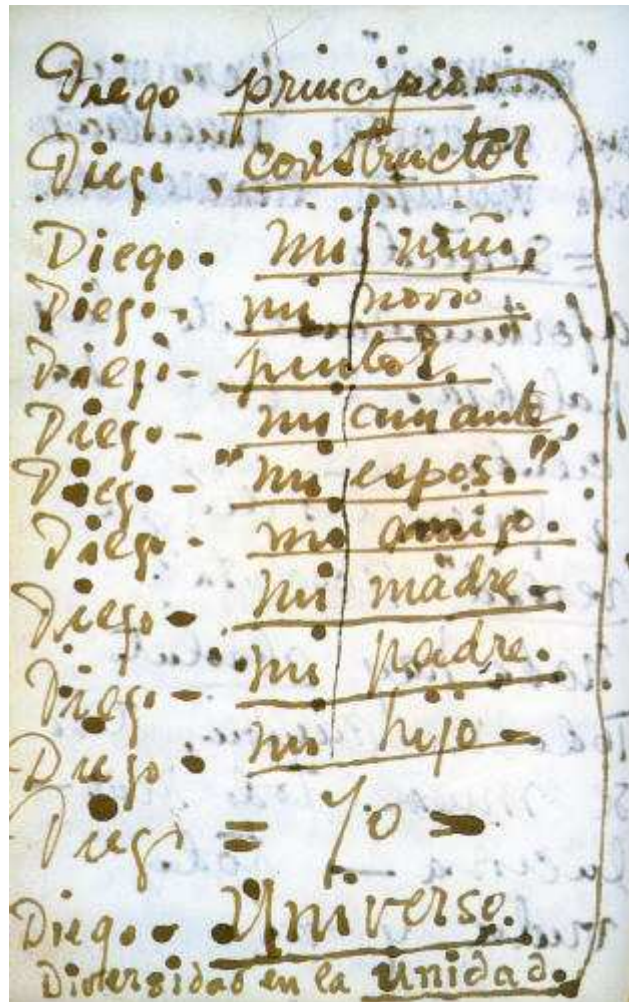 Diego principio.
Diego. constructor
Diego. mi niño,
Diego. mi novio.
Diego- pintor.
Diego - mi amante,
Diego - "mi esposo."
Diego - mi amigo.
Diego - mi madre -
Diego - mi padre.
Diego. mi hijo -
Diego = Yo -
Diego - Universo.
Diversidad en la unidad.